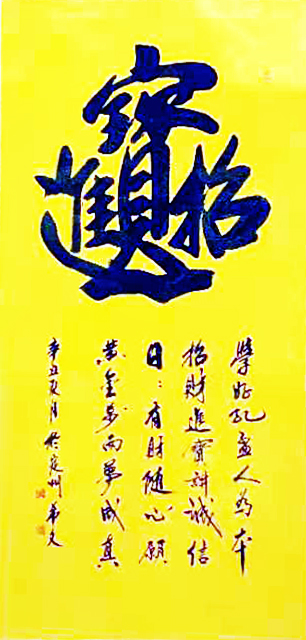 招財進寶
學好孔孟人為本
招財進寶講誠信
日：有財隨心願
黃金 夢成真
辛丑夏月於定州